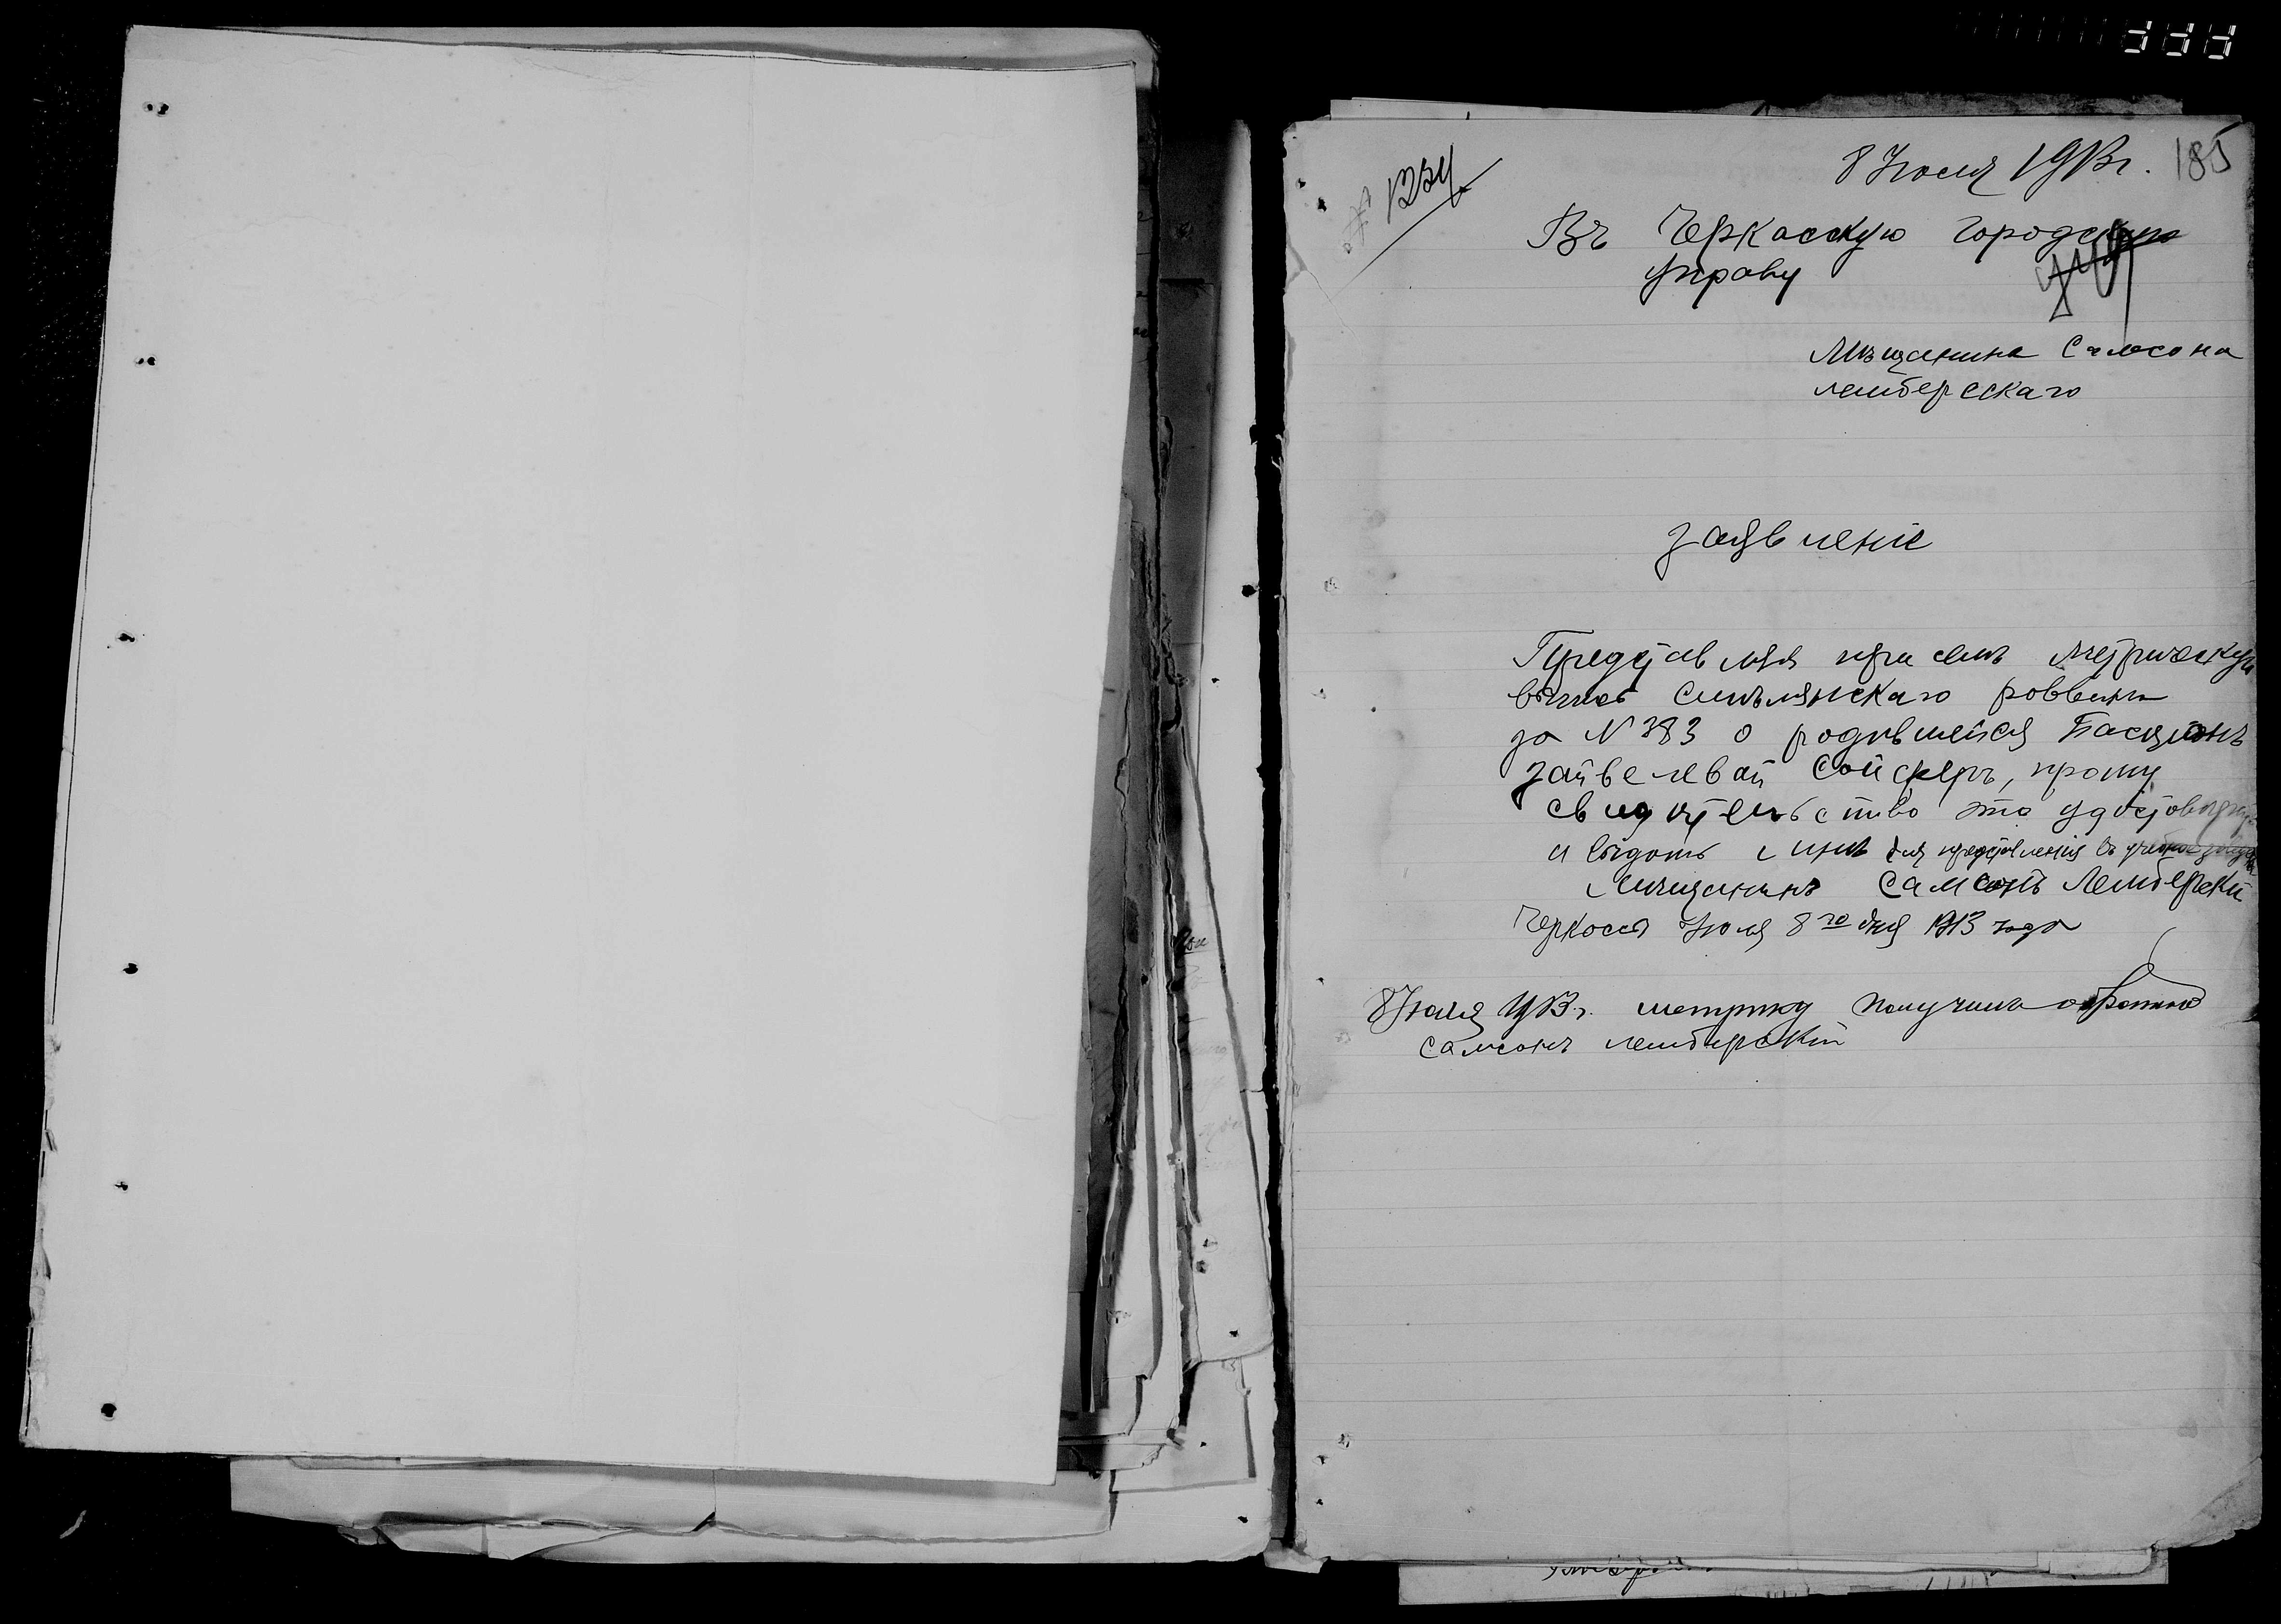 8 Июля 1913 г. 185
№ 1254
Въ Черкасскую городскую
управу
Мѣщанина Самсона
Лемберскаго
Заявленіе
Представляя при семъ метрическую
выпись Смѣлянскаго раввина
за N 383 о родившейся Басѣ
Сойферъ, прошу
свидѣтельство это удостовѣрить
и выдать мнѣ для представленія въ учебное
Мѣщанинъ Самсонъ Лемберскій
Черкассы Июля 8го дня 1913 года
8 Июля 1913 г. метрику получилъ обратно
Самсонъ Лемберскій